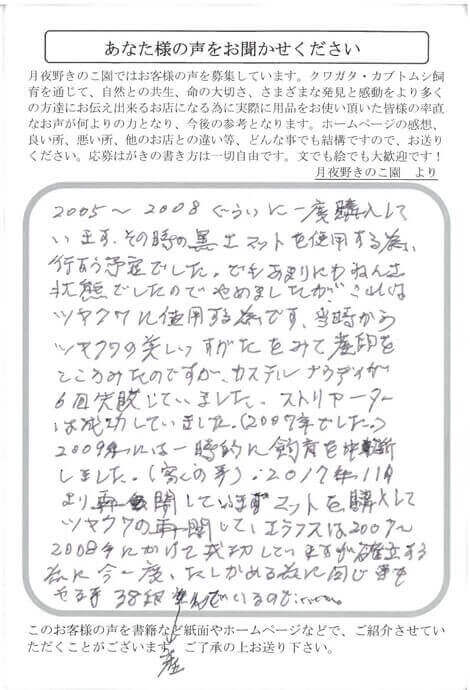 あなた様の声をお聞かせください
月夜野きのこ園ではお客様の声を募集しています。クワガタ・カブトムシ飼
育を通じて、自然との共生、命の大切さ、さまざまな発見と感動をより多く
の方達にお伝え出来るお店になる為に実際に用品をお使い頂いた皆様の率直
なお声が何よりの力となり、今後の参考となります。ホームページの感想、
良い所、悪い所、他のお店との違い等、どんな事でも結構ですので、お送り
ください。応募はがきの書き方は一切自由です。文でも絵でも大歓迎です！
月夜野きのこ園　より
2005～2008ぐらいに一度購入して
います。その時の黒土マットを使用する為、
行なう予定でした。でもあまりにも
状態でしたのでやめましたが、これは
ツヤクワに使用する為です。当時から
ツヤクワの美しいすがたをみて産卵を
こころみたのですが、カステルナウディが
6回失敗していました。ストリヤーター
は成功していました。(2007年でした。)
2009年には一時的に飼育を中断
しました。(家の事)。2017年11月
より再開しています マットを購入して
ツヤクワの再開してい エラフスは2007～
2008年にかけて成功していますが確立する
為に今一度、たしかめる為に同じ
やる 38組 でいるので
産
このお客様の声を書籍など紙面やホームページなどで、ご紹介させてい
ただくことがございます。ご了承の上お送り下さい。